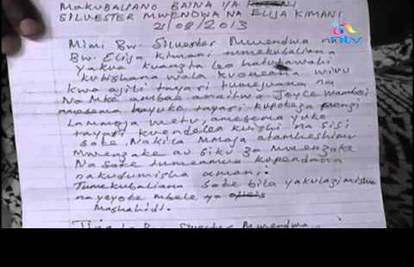 MAKUBALIANO BAINA YA
SILVESTER MWENDWA NA ELIJA KIMANI
21/08/2013
ntv
Mimi Bw. Silvester Mwendwa na
Bw. Elija Kimani tumekubaliana
yakwa kuanzia leo hatutawahi
kutishana wala kuoneana wivu
kwa ajili tayari tumejuana na
Na mke ambae anaitwa Joyce Wambui
amesema hayuko tayari kupoteza penzi
Lammoja wetu, amesema yuko
tayari kuendelea kuishi na sisi
sote. Nakila mmoja atamheshimu
mwenzake au siku za mwenzake
Na sote tumeamua kupendana
nakudumisha amani.
Tumekubaliana sote bila yakulazimishwa
nayeyote mbele ya
mashahidi.